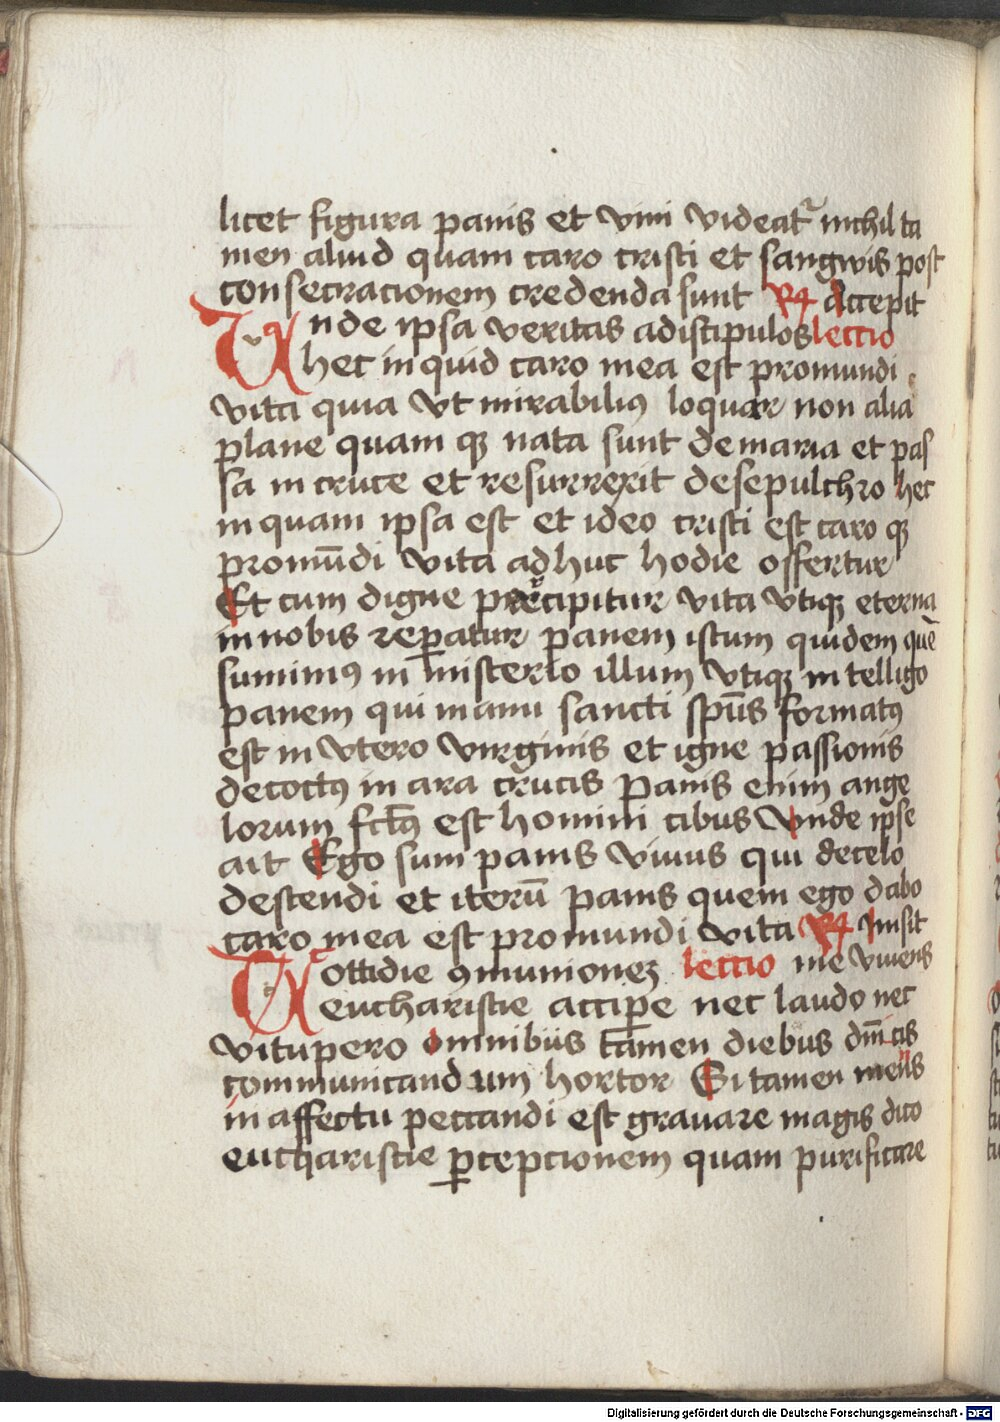 licet figura panis et vini videat᷑ nichil ta
men aliud quam caro cristi et sangwis post
consecracionem credenda sunt R Accepit
Vnde ipsa veritas ad iscipulos lectio
hec in quid caro mea est pro mundi
vita quia vt mirabiliꝰ loquar non alia
plane quam qꝫ nata sunt de maria et pas
sa in cruce et resurrexit de sepulchro hec
in quam ipsa est et ideo cristi est caro qꝫ
pro mūdi vita ad huc hodie offertur
Et cum digne percipitur vita vtiqꝫ eterna
in nobis reꝑatur panem istum quidem quē
sumimꝰ in misterio illum vtiqꝫ in telligo
panem qui manu sancti sp̄us formatꝰ
est in vtero virginis et igne passionis
decoctꝰ in ara crucis Panis enim ange
lorum fc̄tꝰ est homini cibus Vnde ipse
ait Ego sum panis viuus qui de celo
descendi et iterū panis quem ego dabo
caro mea est pro mundi vita R Misit
Cottidie ꝯmunionez lectio me viuens
eucharistie accipe nec laudo nec
vitupero omnibus tamen diebus dn̄icis
communicandum hortor Si tamen mens
in affectu peccandi est grauare magis dico
eucharistie ꝑcepcionem quam purificare
Digitalisierung gefördert durch die Deutsche Forschungsgemeinschaft - DFG